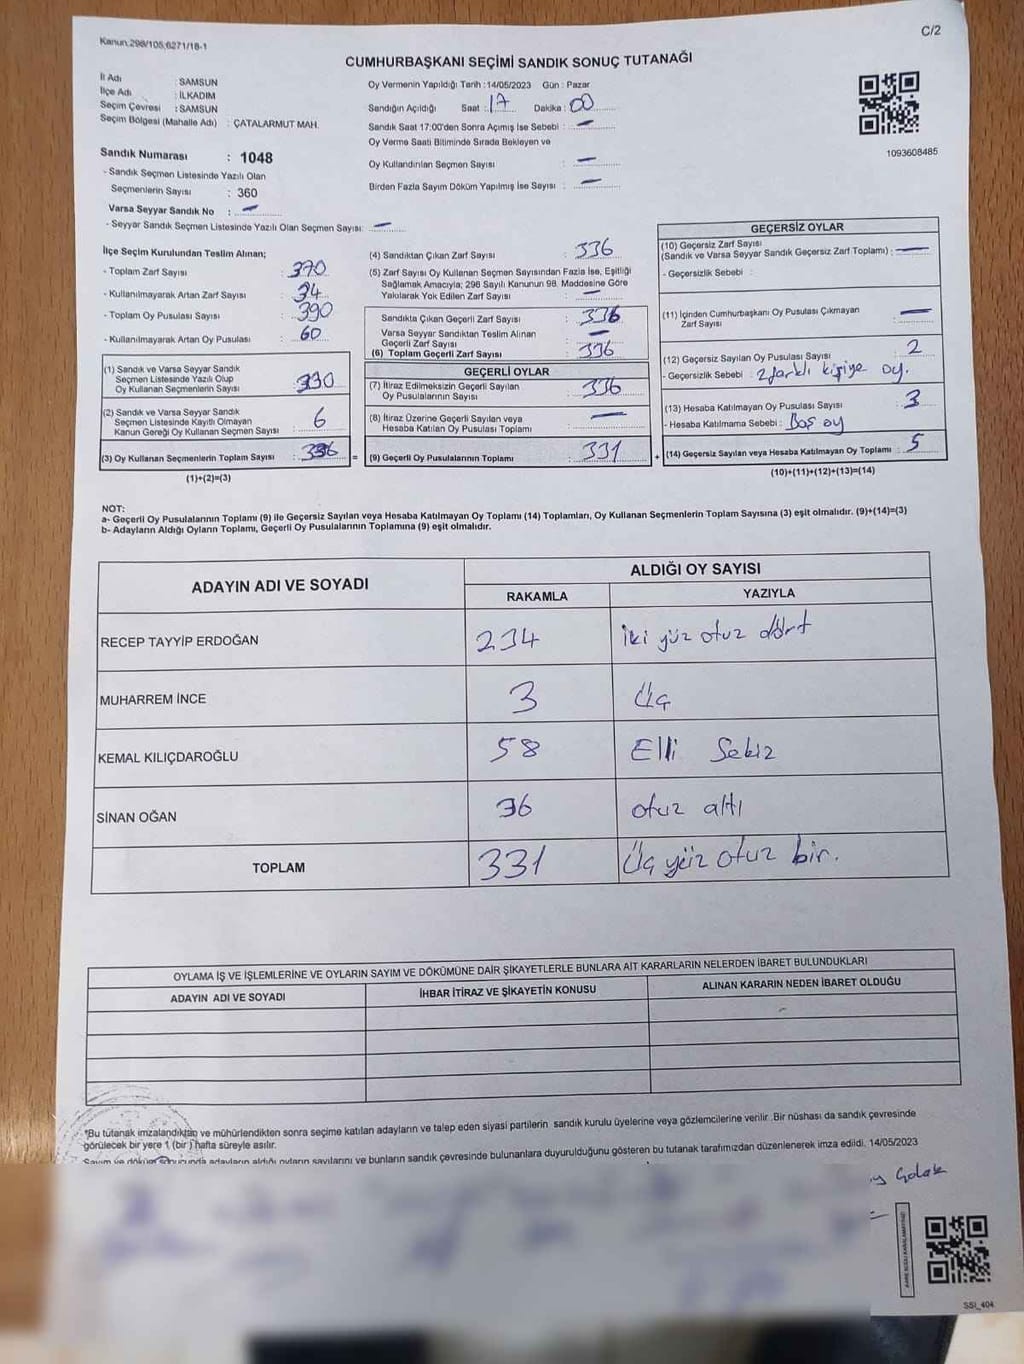 Kanun,298/105,6271/18-1
C/2
CUMHURBAŞKANI SEÇİMİ SANDIK SONUÇ TUTANAĞI
İl Adı : SAMSUN
İlçe Adı : İLKADIM
Seçim Çevresi : SAMSUN
Seçim Bölgesi (Mahalle Adı) : ÇATALARMUT MAH.
Sandık Numarası : 1048
- Sandık Seçmen Listesinde Yazılı Olan
Seçmenlerin Sayısı : 360
Varsa Seyyar Sandık No : —
- Seyyar Sandık Seçmen Listesinde Yazılı Olan Seçmen Sayısı: —
Oy Vermenin Yapıldığı Tarih :14/05/2023 Gün : Pazar
Sandığın Açıldığı Saat : 17 Dakika : 00
Sandık Saat 17:00'den Sonra Açımış İse Sebebi : —
Oy Verme Saati Bitiminde Sırada Bekleyen ve
Oy Kullandırılan Seçmen Sayısı : —
Birden Fazla Sayım Döküm Yapılmış İse Sayısı : —
1093608485
İlçe Seçim Kurulundan Teslim Alınan;
- Toplam Zarf Sayısı : 370
- Kullanılmayarak Artan Zarf Sayısı : 34
- Toplam Oy Pusulası Sayısı : 390
- Kullanılmayarak Artan Oy Pusulası : 60
(1) Sandık ve Varsa Seyyar Sandık
Seçmen Listesinde Yazılı Olup
Oy Kullanan Seçmenlerin Sayısı : 330
(2) Sandık ve Varsa Seyyar Sandık
Seçmen Listesinde Kayıtlı Olmayan
Kanun Gereği Oy Kullanan Seçmen Sayısı : 6
(3) Oy Kullanan Seçmenlerin Toplam Sayısı : 336 =
(1)+(2)=(3)
(4) Sandıktan Çıkan Zarf Sayısı : 336
(5) Zarf Sayısı Oy Kullanan Seçmen Sayısından Fazla İse, Eşitliği
Sağlamak Amacıyla; 298 Sayılı Kanunun 98. Maddesine Göre
Yakılarak Yok Edilen Zarf Sayısı : —
Sandıkta Çıkan Geçerli Zarf Sayısı : 336
Varsa Seyyar Sandıktan Teslim Alınan
Geçerli Zarf Sayısı : —
(6) Toplam Geçerli Zarf Sayısı : 336
GEÇERLİ OYLAR
(7) İtiraz Edilmeksizin Geçerli Sayılan
Oy Pusulalarının Sayısı : 336
(8) İtiraz Üzerine Geçerli Sayılan veya
Hesaba Katılan Oy Pusulası Toplamı : —
(9) Geçerli Oy Pusulalarının Toplamı : 331 +
GEÇERSİZ OYLAR
(10) Geçersiz Zarf Sayısı
(Sandık ve Varsa Seyyar Sandık Geçersiz Zarf Toplamı) : —
- Geçersizlik Sebebi :
(11) İçinden Cumhurbaşkanı Oy Pusulası Çıkmayan
Zarf Sayısı : —
(12) Geçersiz Sayılan Oy Pusulası Sayısı : 2
- Geçersizlik Sebebi : 2 farklı kişiye oy.
(13) Hesaba Katılmayan Oy Pusulası Sayısı : 3
- Hesaba Katılmama Sebebi : Boş oy
(14) Geçersiz Sayılan veya Hesaba Katılmayan Oy Toplamı : 5
(10)+(11)+(12)+(13)=(14)
NOT:
a- Geçerli Oy Pusulalarının Toplamı (9) ile Geçersiz Sayılan veya Hesaba Katılmayan Oy Toplamı (14) Toplamları, Oy Kullanan Seçmenlerin Toplam Sayısına (3) eşit olmalıdır. (9)+(14)=(3)
b- Adayların Aldığı Oyların Toplamı, Geçerli Oy Pusulalarının Toplamına (9) eşit olmalıdır.
ADAYIN ADI VE SOYADI
ALDIĞI OY SAYISI
RAKAMLA YAZIYLA
RECEP TAYYİP ERDOĞAN 234 iki yüz otuz dört
MUHARREM İNCE 3 Üç
KEMAL KILIÇDAROĞLU 58 Elli Sekiz
SİNAN OĞAN 36 otuz altı
TOPLAM 331 Üç yüz otuz bir.
OYLAMA İŞ VE İŞLEMLERİNE VE OYLARIN SAYIM VE DÖKÜMÜNE DAİR ŞİKAYETLERLE BUNLARA AİT KARARLARIN NELERDEN İBARET BULUNDUKLARI
ADAYIN ADI VE SOYADI İHBAR İTİRAZ VE ŞİKAYETİN KONUSU ALINAN KARARIN NEDEN İBARET OLDUĞU
*Bu tutanak imzalandıktan ve mühürlendikten sonra seçime katılan adayların ve talep eden siyasi partilerin sandık kurulu üyelerine veya gözlemcilerine verilir .Bir nüshası da sandık çevresinde
görülecek bir yere 1 (bir ) hafta süreyle asılır.
Sayım ve döküm sonucunda adayların aldığı oyların sayılarını ve bunların sandık çevresinde bulunanlara duyurulduğunu gösteren bu tutanak tarafımızdan düzenlenerek imza edildi. 14/05/2023
SSI_404